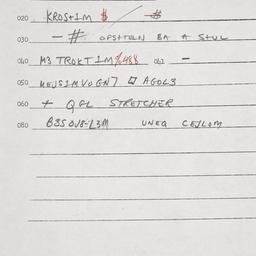 020 KROS+1M $ #
030 - # OPSHTELN BA A StUL
040 M3 TROKT 1M %488 041 -
050 AGOL3
060 + QGL STRETCHER
080 B3SOJ8-L3M UNEQ CEJLOM